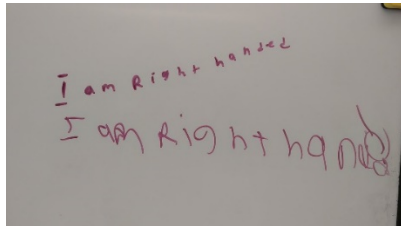 I am Right handed
I am Right hand